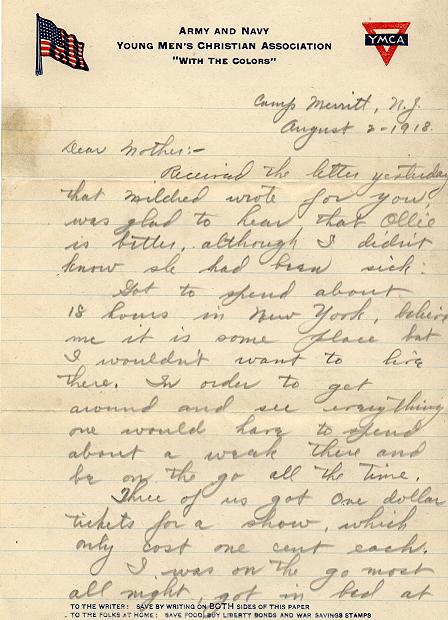 ARMY AND NAVY
YOUNG MEN'S CHRISTIAN ASSOCIATION
"WITH THE COLORS"
YMCA
Camp Merritt, N.J.
August 2-1918.
Dear Mother:-
Received the letter yesterday
that Mildred wrote for you,
was glad to hear that Ollie
is better, although I didn't
know she had been sick.
Got to spend about
18 hours in New York, believe
me it is some place but
I wouldn't want to live
there. In order to get
around and see everything
one would have to spend
about a week there and
be on the go all the time.
Three of us got one dollar
tickets for a show, which
only cost one cent each.
I was on the go most
all night, got in bed at
TO THE WRITER: SAVE BY WRITING ON BOTH SIDES OF THIS PAPER
TO THE FOLKS AT HOME: SAVE FOOD, BUY LIBERTY BONDS AND WAR SAVINGS STAMPS